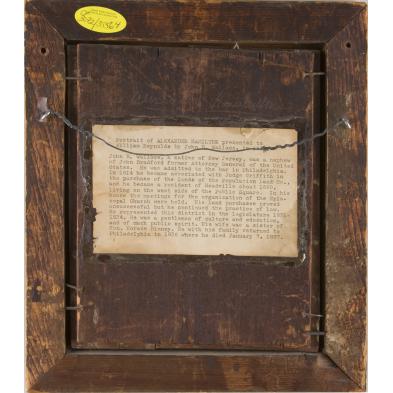 Portrait of ALEXANDER HAMILTON presented to
William Reynolds by John B. Wallace,
John B. Wallace, a native of New Jersey, was a nephew
of John Bradford former Attorney General of the United
States. He was admitted to the bar in Philadelphia.
In 1814 he became associated with Judge Griffith in
the purchase of the lands of the Population Land Co.,
and he became a resident of Meadville about 1820,
living on the west side of the Public Square. In his
house the meetings for the organization of the Epis-
copal Church were held. His land purchases proved
unsuccessful but he continued the practice of law.
He represented this district in the legislature
He was a gentleman of culture and education,
and of much public spirit. His wife was a sister of
Hon. Horace Binney. He with his family returned to
Philadelphia in 1836 where he died January 7, 1837.